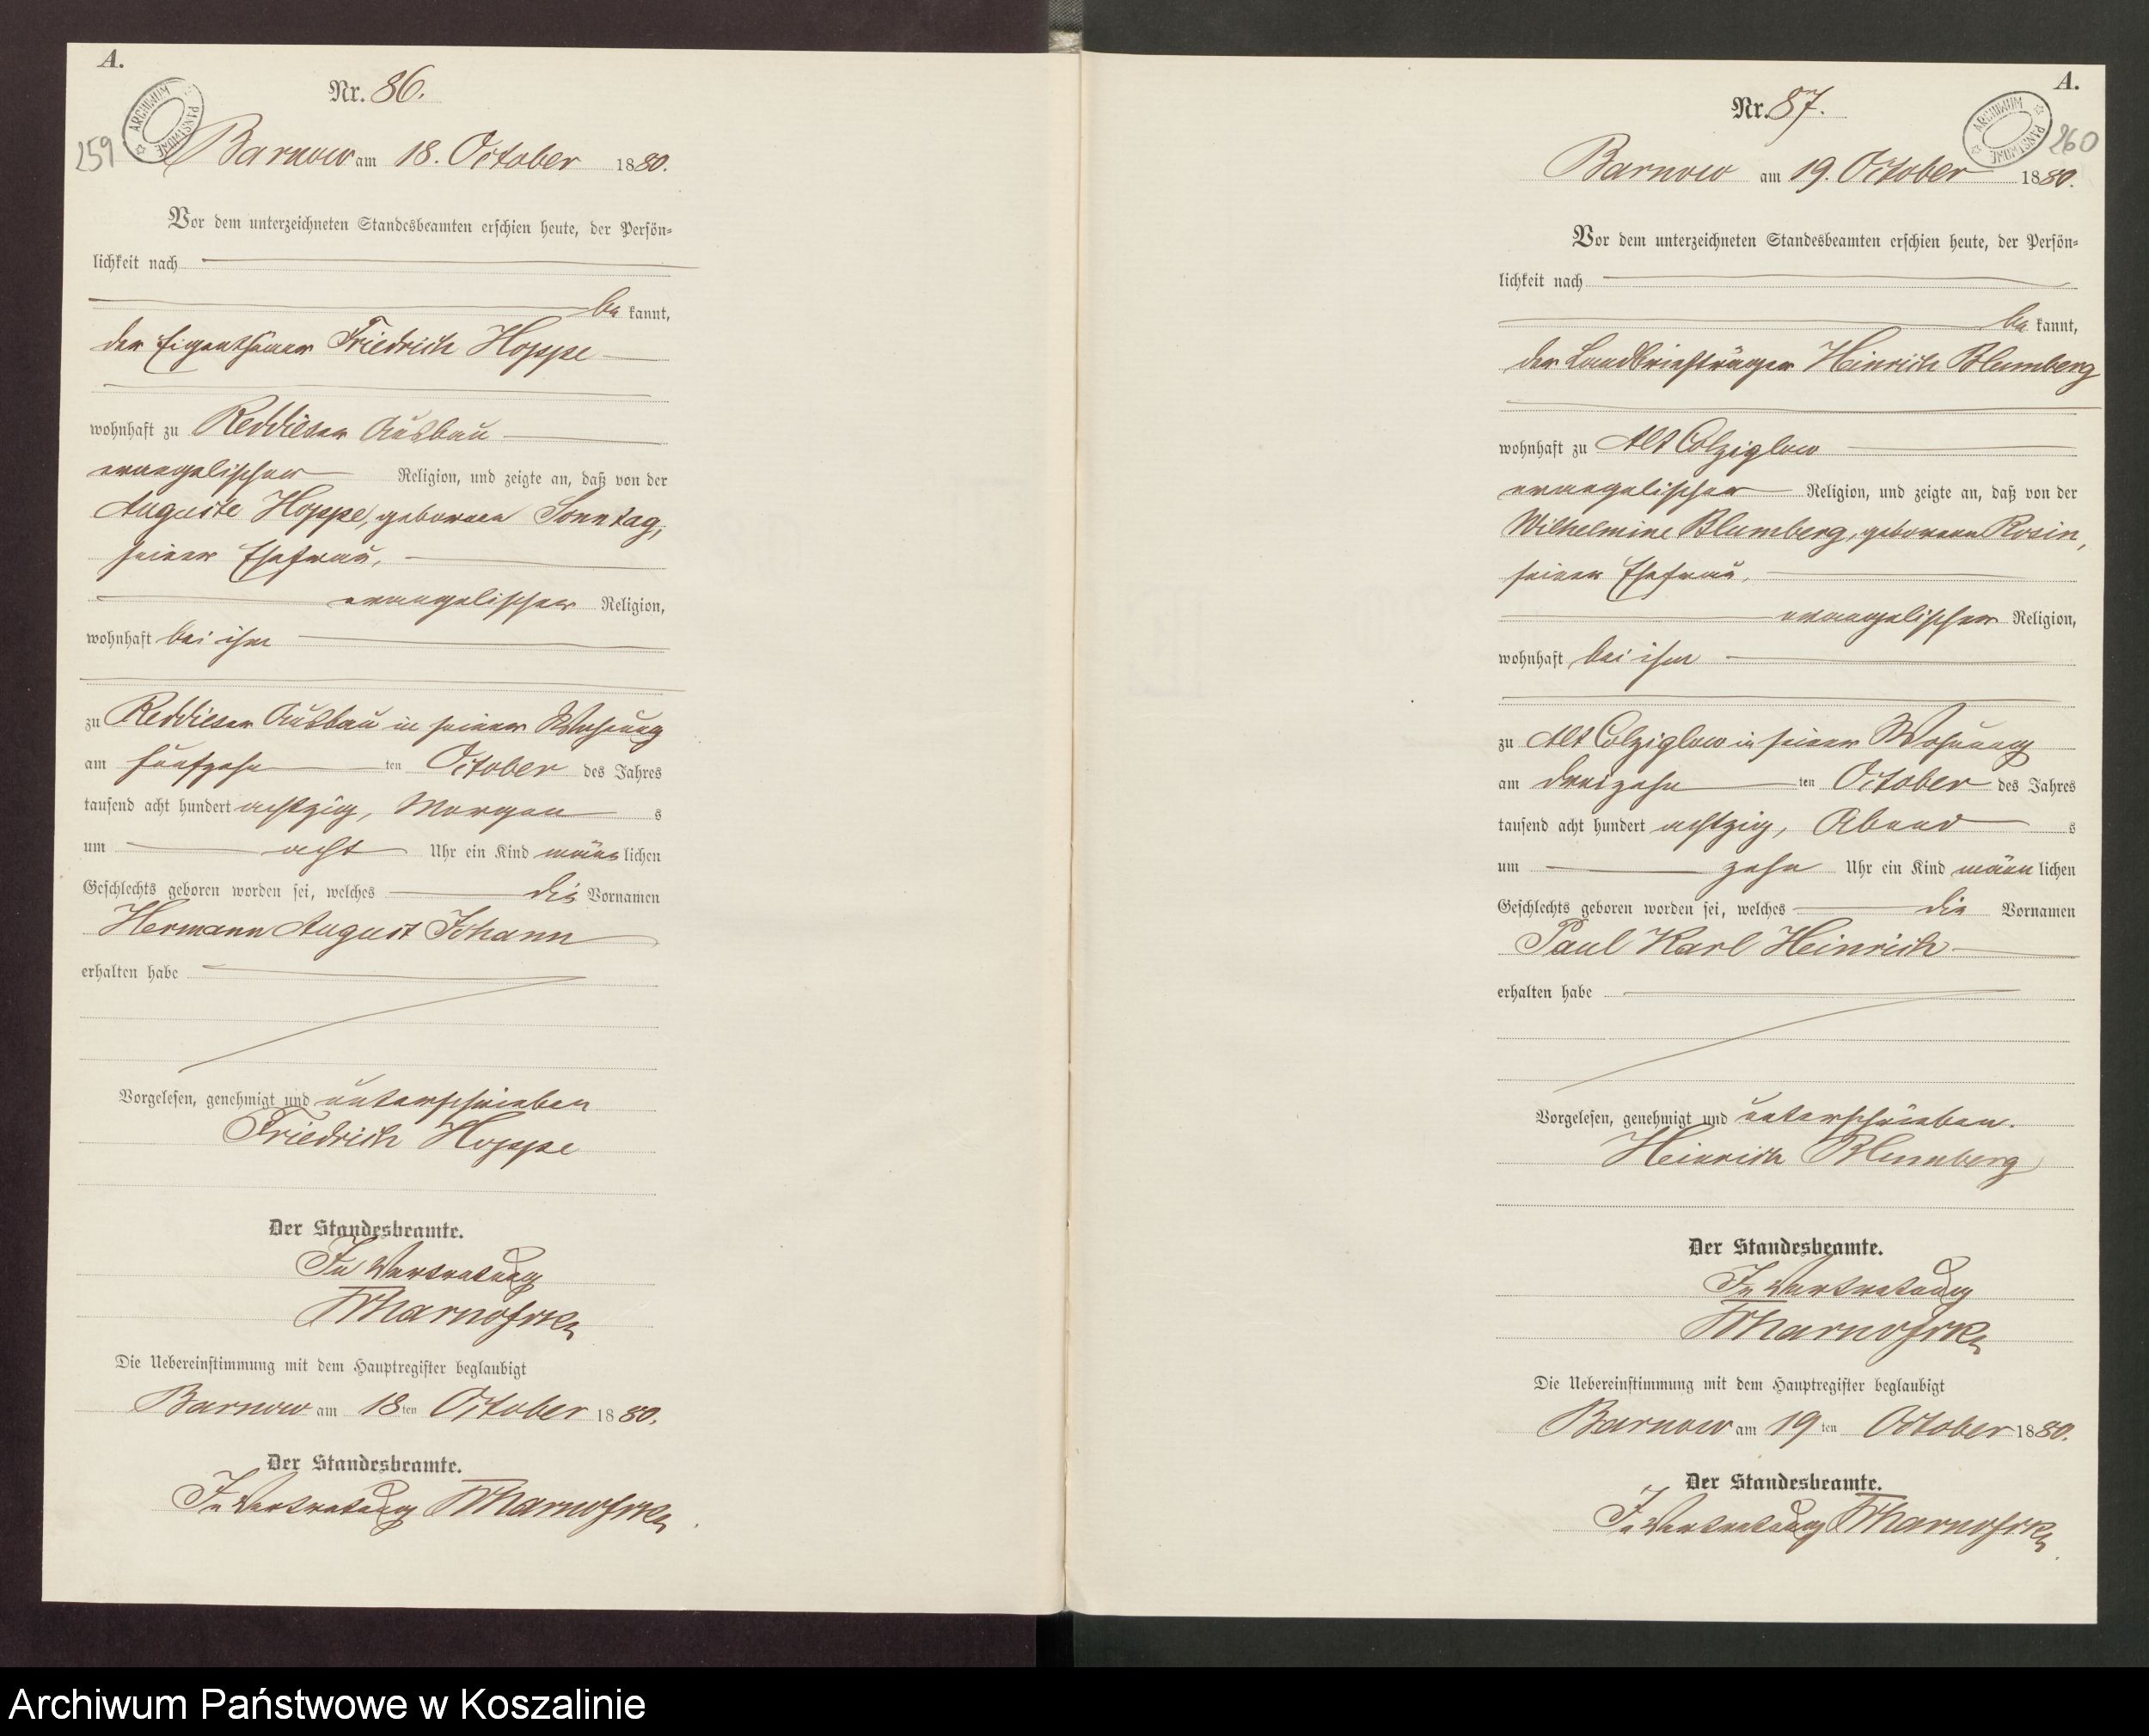 A.
Nr. 86.
ARCHIWUM PAŃSTWOWE
259
Barnow am 18. October 1880.
Vor dem unterzeichneten Standesbeamten erschien heute, der Persön=
lichkeit nach
be kannt,
der Eigenthümer Friedrich Hoppe
wohnhaft zu Reddieser Ausbau
evangelischer Religion, und zeigte an, daß von der
Auguste Hoppe, geborenen Sonntag,
seiner Ehefrau,
evangelischer Religion,
wohnhaft bei ihm
zu Reddieser Ausbau in seiner Wohnung
am fünfzehn ten October des Jahres
tausend acht hundert achtzig, Morgen s
um acht Uhr ein Kind männ lichen
Geschlechts geboren worden sei, welches die Vornamen
Hermann August Johann
erhalten habe
Vorgelesen, genehmigt und unterschrieben
Friedrich Hoppe
Der Standesbeamte.
In Vertretung
Die Uebereinstimmung mit dem Hauptregister beglaubigt
Barnow am 18 ten October 1880.
Der Standesbeamte.
In Vertretung
A.
Nr. 87.
ARCHIWUM PAŃSTWOWE
260
Barnow am 19. October 1880.
Vor dem unterzeichneten Standesbeamten erschien heute, der Persön=
lichkeit nach
be kannt,
der Landbriefträger Heinrich Blumberg
wohnhaft zu Alt Colziglow
evangelischer Religion, und zeigte an, daß von der
Wilhelmine Blumberg, geborenen Rosin,
seiner Ehefrau,
evangelischer Religion,
wohnhaft bei ihm
zu Alt Colziglow in seiner Wohnung
am dreizehn ten October des Jahres
tausend acht hundert achtzig, Abend s
um zehn Uhr ein Kind männ lichen
Geschlechts geboren worden sei, welches die Vornamen
Paul Karl Heinrich
erhalten habe
Vorgelesen, genehmigt und unterschrieben.
Heinrich Blumberg
Der Standesbeamte.
In Vertretung
Die Uebereinstimmung mit dem Hauptregister beglaubigt
Barnow am 19 ten October 1880.
Der Standesbeamte.
In Vertretung
Archiwum Państwowe w Koszalinie